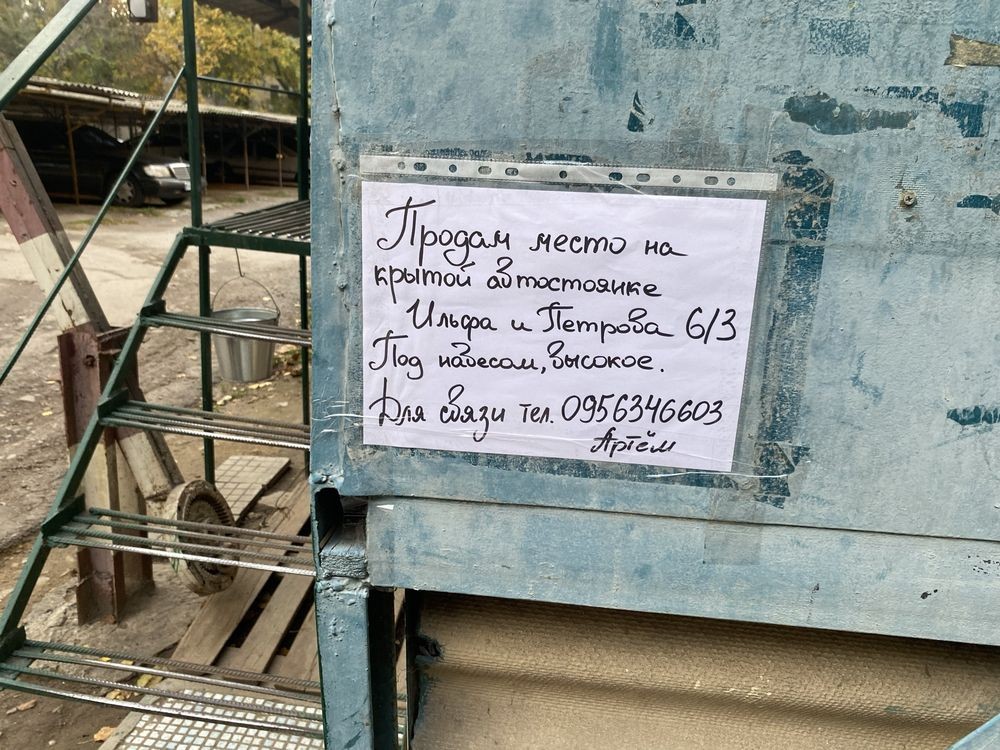 Продам место на
крытой автостоянке
Ильфа и Петрова 6/3
Под навесом, высокое.
Для связи тел. 0956346603
Артём